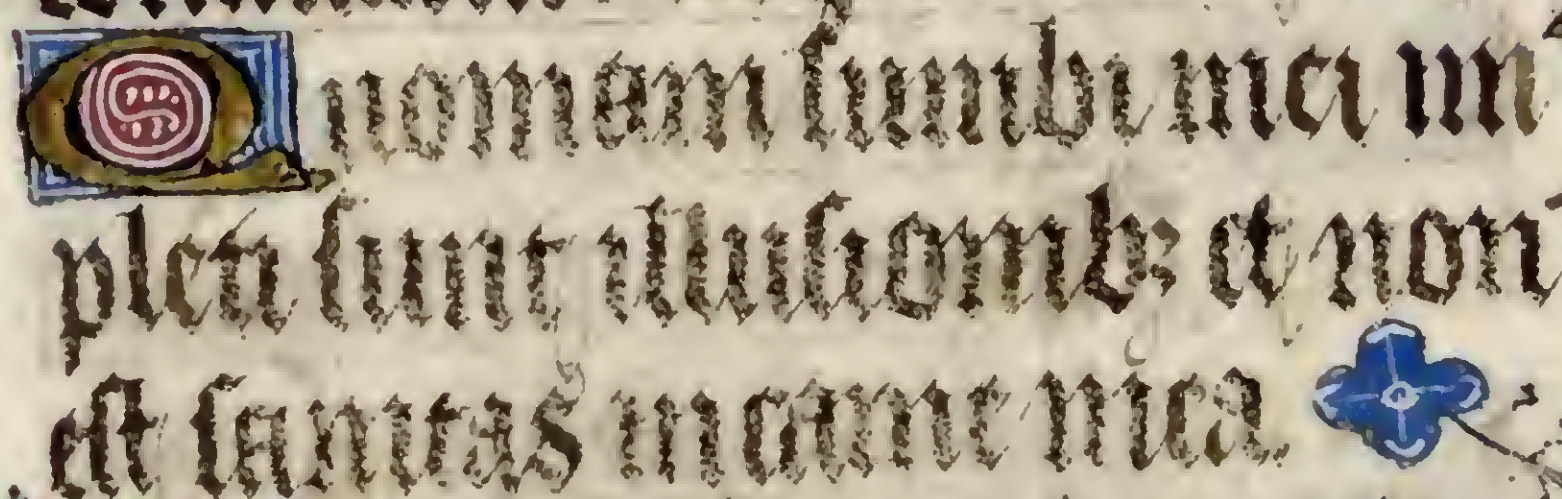 Quoniam lumbi mei im
pleti sunt illusionib; et non
est sanitas in carne mea